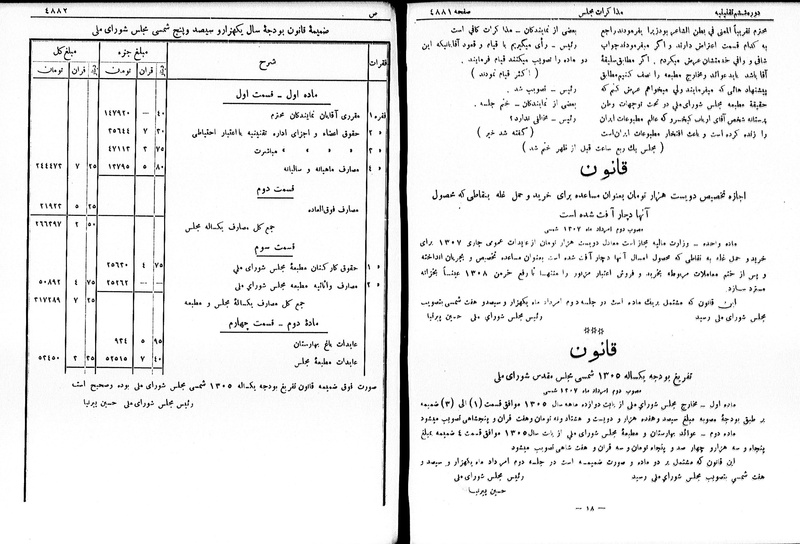 دوره ششم تقنینیه
مذاکرات مجلس
صفحه ٤٨٨١
محترم تقریباً المعنی فی بطن الشاعر بود زیرا بفرمودند راجع
به کدام قسمت اعتراض دارند و اگر میفرمودند جواب
شافی و وافی خدمتشان عرض میکردم. اگر مطابق سلیقهٔ
آقا باشد باید عوائد و مخارج مطبعه را نصف کنیم مطابق
پیشنهاد هائی که میفرمایند ولی میخواهم عرض کنم که
حقیقة مطبعه مجلس شورای ملی در تحت توجهات وطن
پرستانه شخص آقای ارباب کیخسرو که عالم مطبوعات ایران
را زنده کرده است و باعث افتخار مطبوعات ایران است
بعضی از نمایندگان ـ مذاکرات کافی است
رئیس ـ رأی میگیریم با قیام و قعود آقایانیکه این
دو ماده را تصویب میکنند قیام فرمایند.
( اکثر قیام نمودند )
رئیس ـ تصویب شد.
بعضی از نمایندگان ـ ختم جلسه.
رئیس ـ مخالفی ندارد ؟
( گفته شد خیر )
( مجلس یک ربع ساعت قبل از ظهر ختم شد )
قانون
اجازه تخصیص دویست هزار تومان بعنوان مساعده برای خرید و حمل غله بنقاطی که محصول
آنها دچار آفت شده است
مصوب دوم امرداد ماه ١٣٠٧ شمسی
ماده واحده ـ وزارت مالیه مجاز است معادل دویست هزار تومان از عایدات عمومی جاری ١٣٠٧ برای
خرید و حمل غله به نقاطی که محصول امسال آنها دچار آفت شده است بعنوان مساعده تخصیص و بجریان انداخته
و پس از ختم معاملات مربوطه بخرید و فروش اعتبار مزبور را منتها تا رفع خرمن ١٣٠٨ عیناً بخزانه
مسترد سازد.
این قانون که مشتمل بریک ماده است در جلسه دوم امرداد ماه یکهزار و سیصد و هفت شمسی بتصویب
مجلس شورای ملی رسید
رئیس مجلس شورای ملی حسین پیرنیا
قانون
تفریغ بودجه یکساله ١٣٠٥ شمسی مجلس مقدس شورای ملی
مصوب دوم امرداد ماه ١٣٠٧ شمسی
ماده اول ـ مخارج مجلس شورای ملی از بابت دوازده ماهه سال ١٣٠٥ موافق قسمت (١) الی (٣) ضمیمه
بر طبق بودجهٔ مصوبه مبلغ سیصد و هفده هزار و دویست و هشتاد و نه تومان و هفت قران و پنجشاهی تصویب میشود
ماده دوم ـ عوائد بهارستان و مطبعهٔ مجلس شورای ملی از بابت سال ١٣٠٥ موافق قسمت ٤ ضمیمه بمبلغ
پنجاه و سه هزار و چهار صد و پنجاه تومان و سه قران و هفت شاهی تصویب میشود
این قانون که مشتمل بر دو ماده و صورت ضمیمه است در جلسه دوم امرداد ماه یکهزار و سیصد و
هفت شمسی بتصویب مجلس شورای ملی رسید
رئیس مجلس شورای ملی
حسین پیرنیا
— ١٨ —
ص
٤٨٨٢
ضمیمهٔ قانون بودجهٔ سال یکهزار و سیصد وپنج شمسی مجلس شورای ملی
فقرات
شرح
مبلغ جزء
مبلغ کل
قران تومان
قران تومان
ماده اول ـ قسمت اول
فقره ١ مقرری آقایان نمایندگان محترم ٤٠ — ١٤٧٩٢٠
« ٢ حقوق اعضاء و اجزای اداره تقنینیه با اعتبار احتیاطی ٣٠ ٧ ٢٥٦٤٤
« ٣ « « « « مباشرت ٧٥ ٢ ٤٧١١٢
« ٤ مصارف ماهیانه و سالیانه ٨٠ ٥ ١٣٧٩٥ ٢٥ ٧ ٢٤٤٤٧٢
قسمت دوم
مصارف فوق‌العاده ٢٥ ٥ ٢١٩٢٣
جمع کل مصارف یکساله مجلس ٥٠ ٢ ٢٦٦٣٩٧
قسمت سوم
« ١ حقوق کارکنان مطبعهٔ مجلس شورای ملی ٧٥ ٤ ٢٥٦٣٠
« ٢ مصارف و اثاثیه مطبعه مجلس شورای ملی — — ٢٥٢٦٢ ٧٥ ٤ ٥٠٨٩٢
جمع کل مصارف یکسالهٔ مجلس و مطبعه ٢٥ ٧ ٣١٧٢٨٩
مادهٔ دوم ـ قسمت چهارم
عایدات باغ بهارستان ٩٥ ٥ ٩٣٤
عایدات مطبعهٔ مجلس ٤٠ ٧ ٥٢٥١٥ ٣٥ ٣ ٥٣٤٥٠
صورت فوق ضمیمه قانون تفریغ بودجه یکساله ١٣٠٥ شمسی مجلس شورای ملی بوده و صحیح است
رئیس مجلس شورای ملی حسین پیرنیا